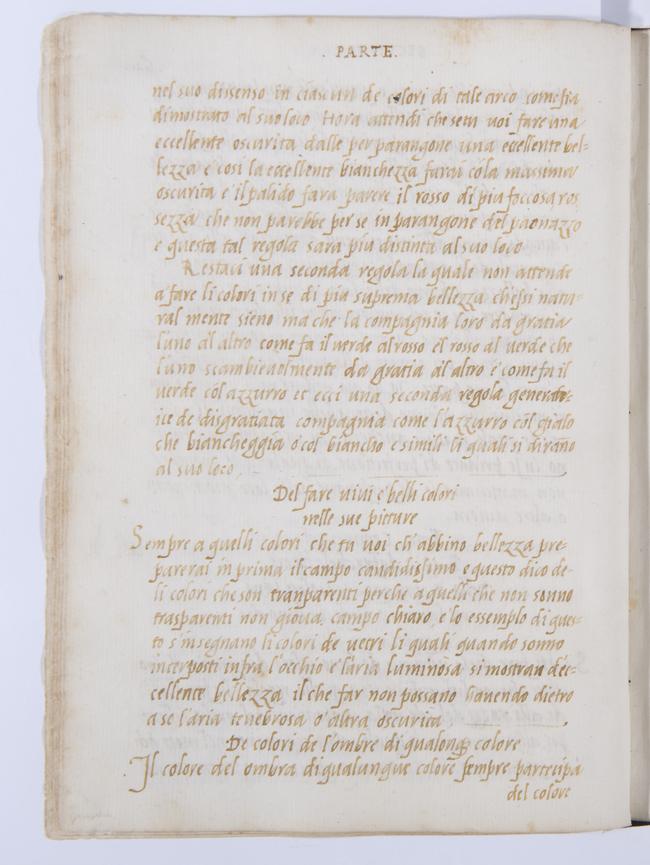 . PARTE.
nel suo dissenso in ciascun de colori di tale arco come fia
dimostrato al suo loco Hora attendi che se tu voi fare una
eccellente oscurita dalle per parangone una eccellente bel=
lezza e cosi la eccellente bianchezza farai cola massima
oscurita e il palido fara parere il rosso di piu foccosa ros
sezza che non parebbe per se in parangone del paonazzo
e questa tal regola sara piu distinta al suo loco
Restaci una seconda regola la quale non attende
a fare li colori in se di piu suprema bellezza ch'essi natu=
ral mente sieno ma che la compagnia loro da gratia
l'uno al altro come fa il verde al rosso el rosso al verde che
l'uno scambievolmente da gratia al altro e come fa il
verde col azzurro et ecci una seconda regola generatr=
ice de disgratiata compagnia come l'azzurro col gialo
che biancheggia o col biancho e simili li quali si dirano
al suo loco
Del fare vivi e belli colori
nelle sue picture
Sempre a quelli colori che tu voi ch'abbino bellezza pre=
parerai in prima il campo candidissimo e questo dico de=
li colori che son tranparenti perche a quelli che non sonno
trasparenti non giova campo chiaro e lo essemplo di ques=
to s'insegnano li colori de vetri li quali quando sonno
interposti infra l'occhio e l'aria luminosa si mostran d'ec=
cellente bellezza il che far non possano havendo dietro
a se l'aria tenebrosa o altra oscurita
De colori de l'ombre di qualonq; colore
Il colore del ombra di qualunque colore sempre partecipa
del colore